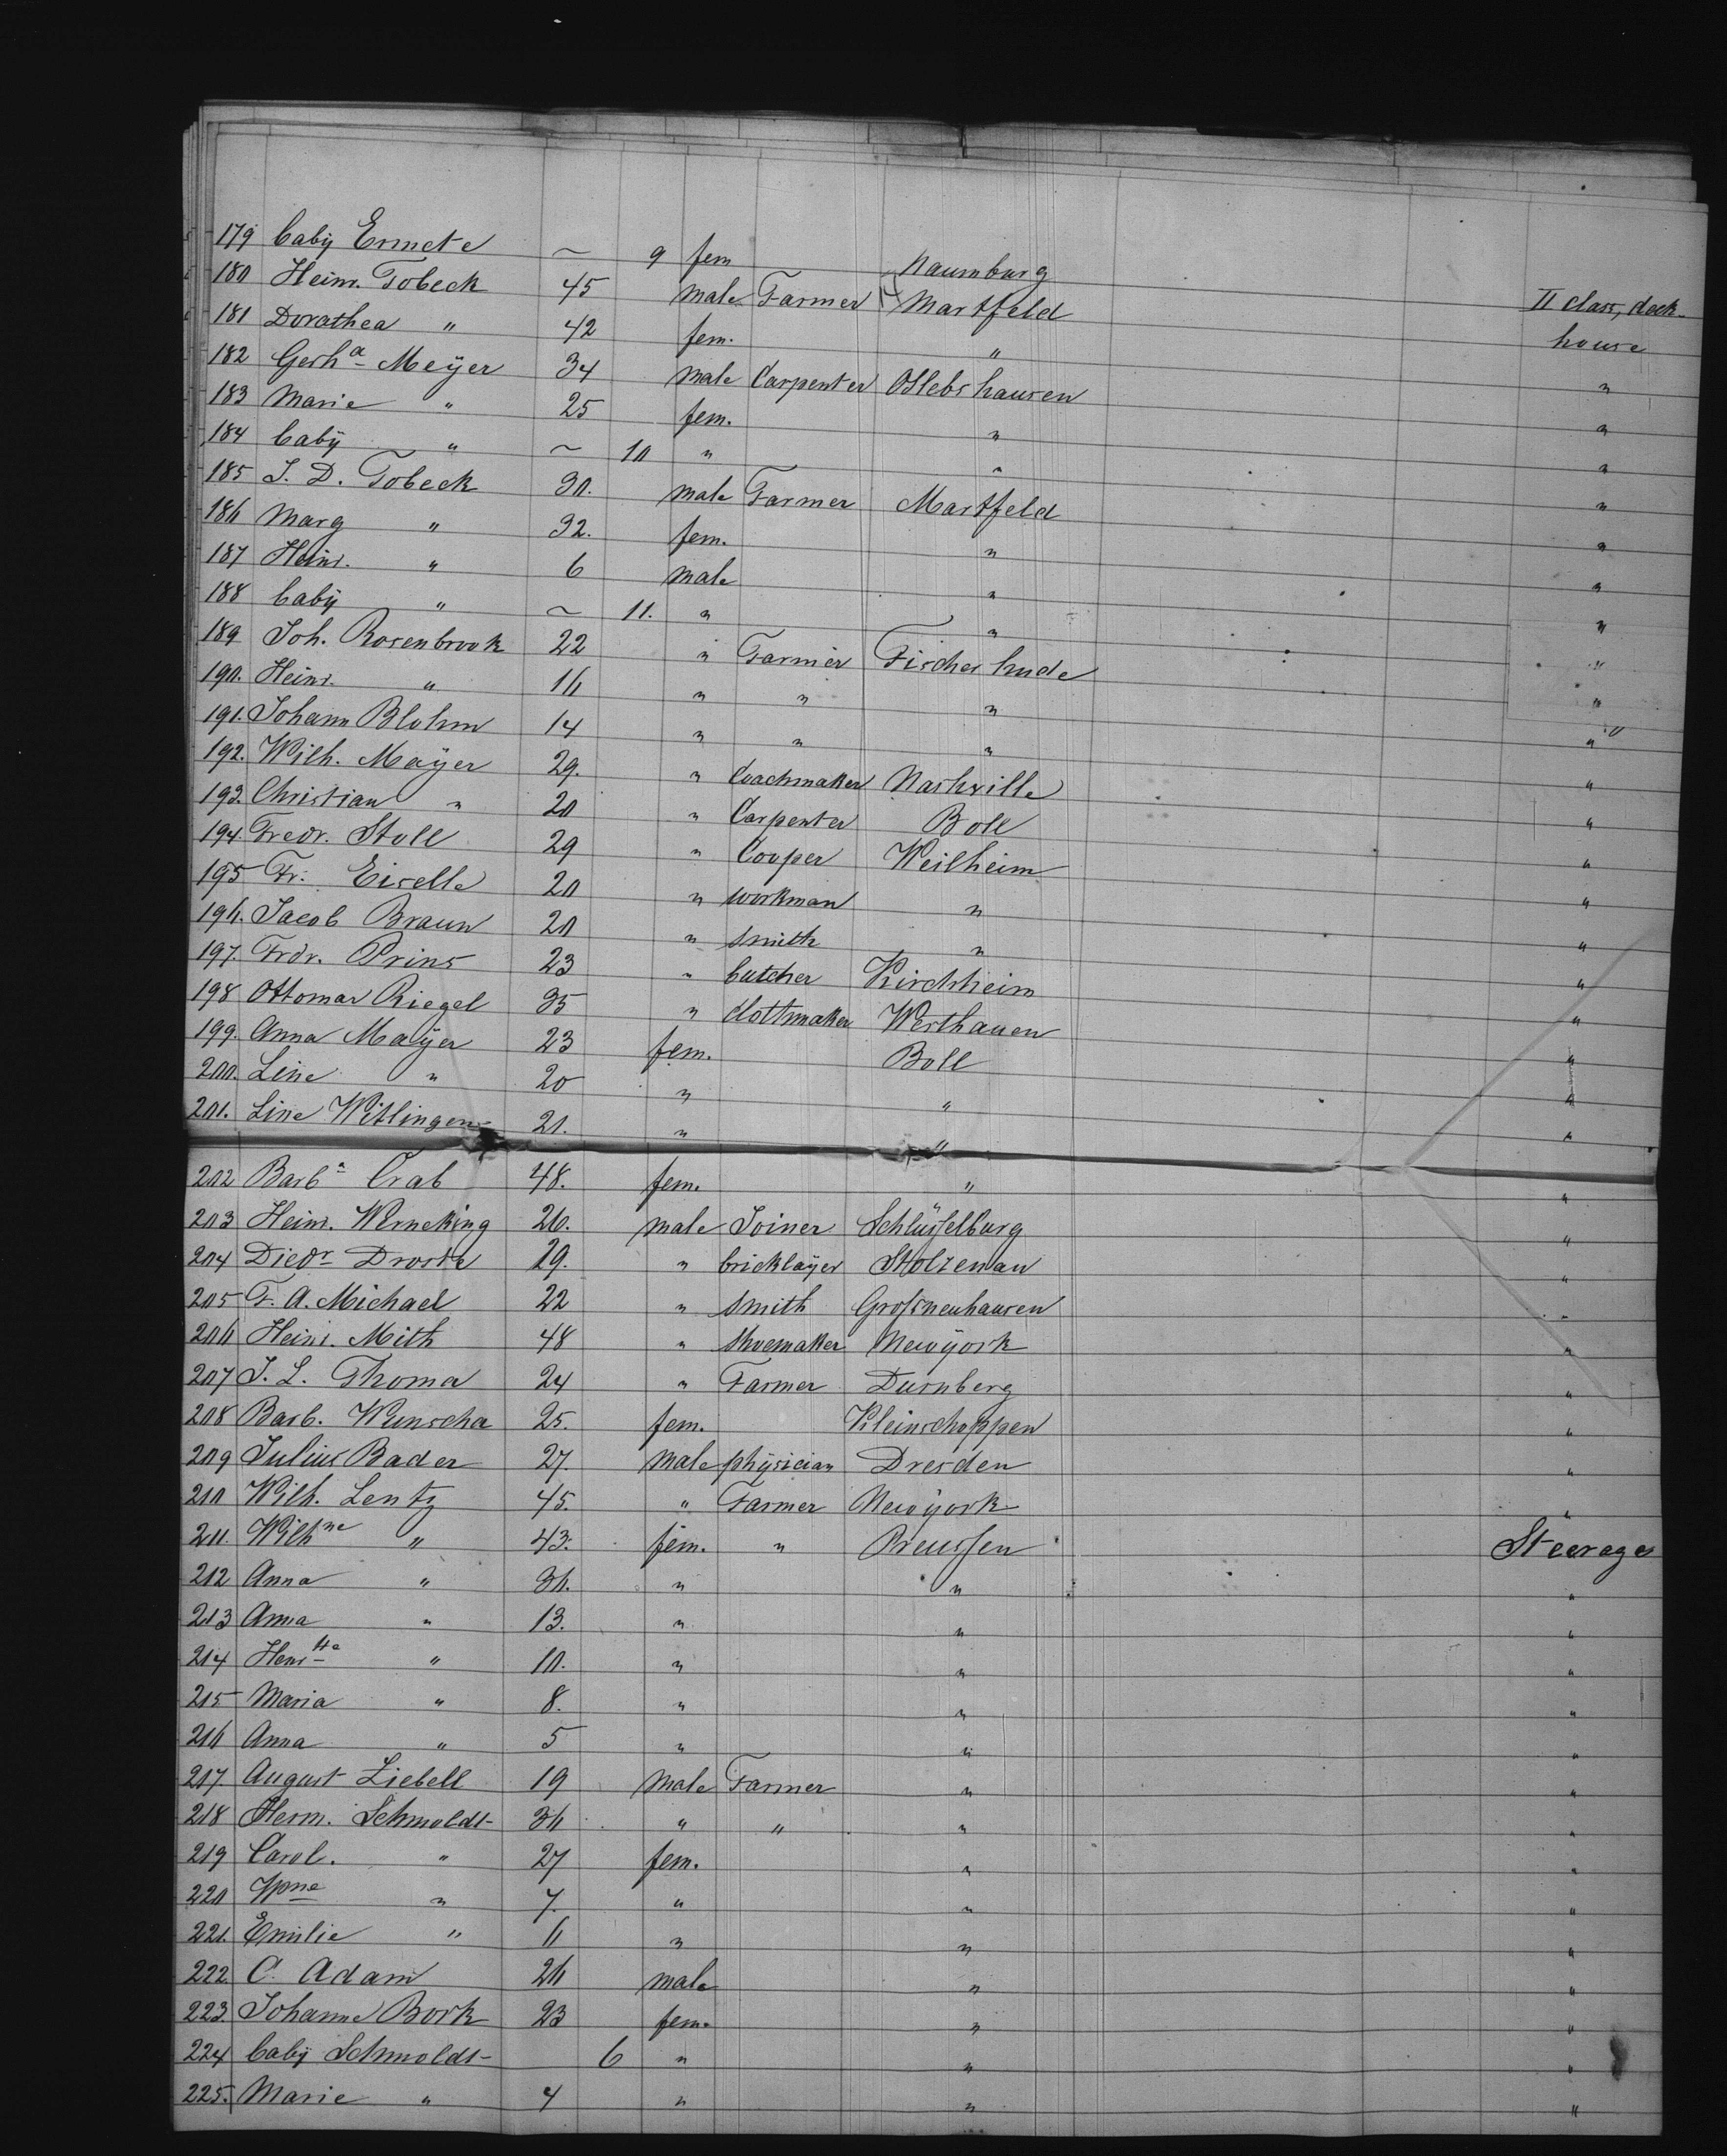 179 baby Ermete ~ 9 fem Naumburg
180 Heinr. Tobeck 45 male Farmer Martfeld II class, deck-
181 Dorathea " 42 fem. " house
182 Gerh<sup>a</sup> Meÿer 34 male Carpenter Oslebshausen "
183 Marie " 25 fem. " "
184 baby " ~ 10 " " "
185 J. D. Tobeck 30. male Farmer Martfeld "
186 Marg " 32. fem. " "
187 Heinr. " 6 male " "
188 baby " ~ 11. " " "
189 Joh. Rosenbrook 22 " Farmer Fischerhude "
190. Heinr. " 16 " " " "
191. Johann Blohm 14 " " " "
192. Wilh. Maÿer 29. " Coachmaker Nashville "
193. Christian " 20 " Carpenter Boll "
194. Fredr. Stoll 29 " Cooper Weilheim "
195 Fr. Eiselle 20 " workman " "
196. Jacob Braun 20 " smith " "
197. Frdr. Prins 23 " butcher Kirchheim "
198 Ottomar Riegel 35 " clothmaker Westhauen "
199. Anna Maÿer 23 fem. Boll "
200. Line " 20 " " "
201. Line Witlingen 21. " " "
202 Barb<sup>a</sup> Crab 48. fem. " "
203 Heinr. Werneking 26. male Joiner Schlüsselburg "
204 Diedr Droste 29. " bricklaÿer Stolzenau "
205 F. A. Michael 22 " smith Grossneuhausen "
206 Heinr. Mith 48 " shoemaker Newÿork "
207 J. L. Thoma 24 " Farmer Durnberg "
208 Barb. Wunscha 25. fem. Kleinschoppen "
209 Julius Bader 27. male phÿsician Dresden "
210 Wilh. Lentz 45. " Farmer Newÿork "
211. Wilh<sup>ne</sup> " 43. fem. " Preussen Steerage
212 Anna " 36. " " "
213 Anna " 13. " " "
214 Henr<sup>tte</sup> " 10. " " "
215 Maria " 8. " " "
216 Anna " 5 " " "
217 August Liebell 19 male Farmer " "
218 Herm. Schmoldt 36 " " " "
219 Carol. " 27 fem. " "
220 W<sup>me</sup> " 7. " " "
221. Emilie " 6 " " "
222. C. Adam 26 male " "
223. Johanne Bork 23 fem. " "
224 baby Schmoldt 6 " " "
225. Marie " 4 " " "